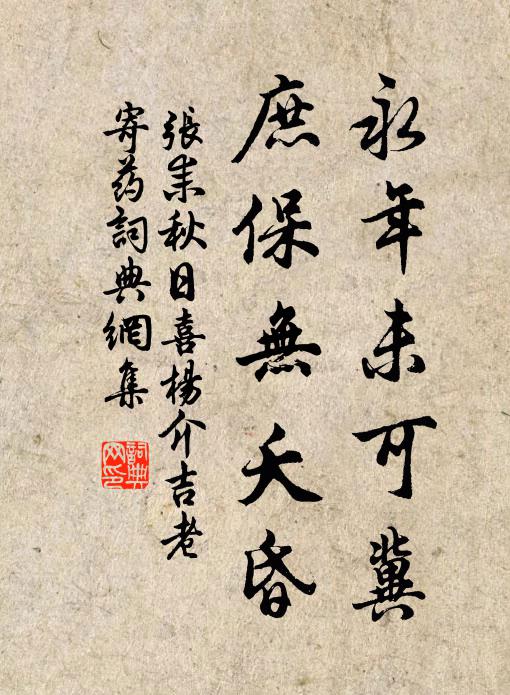 永年未可冀
庶保無夭昏
張耒秋日喜楊介吉老
寄药詞典網集
詞典网印